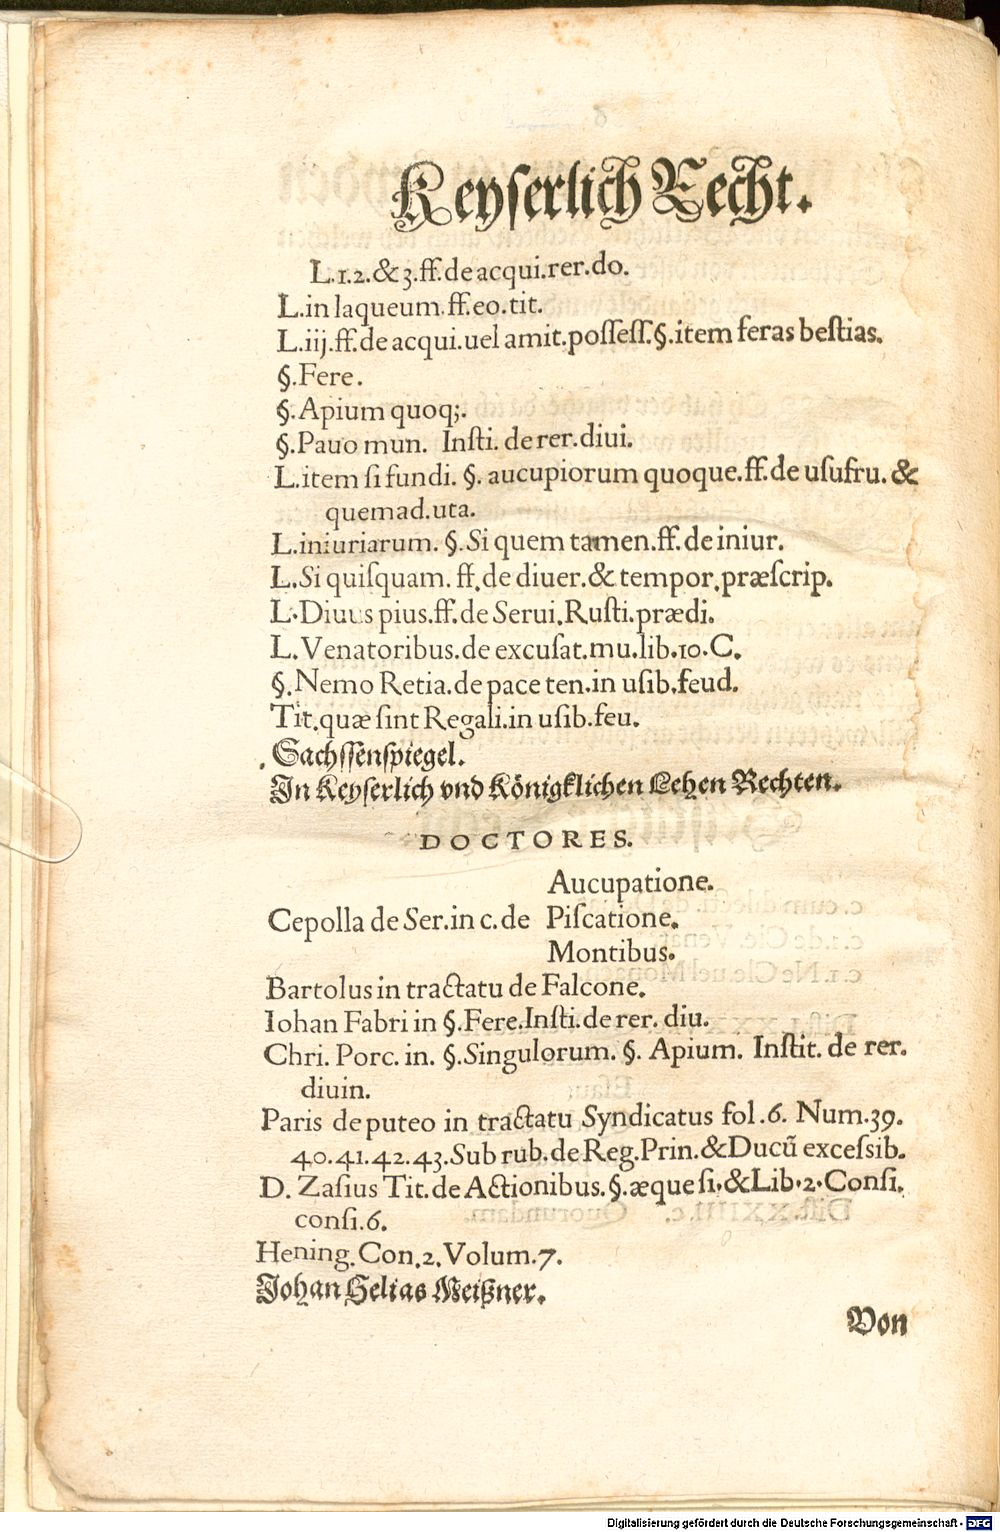 Keyserlich Recht.
L.1.2.&3.ff.de acqui.rer.do.
L.in laqueum.ff.eo.tit.
L.iij.ff.de acqui.uel amit.possess.§.item feras bestias.
§.Fere.
§.Apium quoq;.
§.Pauo mun. Insti. de rer.diui.
L.item si fundi. §. aucupiorum quoque.ff.de usufru. &
quemad.uta.
L.iniuriarum. §.Si quem tamen.ff.de iniur.
L.Si quisquam. ff.de diuer.& tempor.præscrip.
L.Diuus pius.ff.de Serui.Rusti.prædi.
L.Venatoribus.de excusat.mu.lib.10.C.
§.Nemo Retia.de pace ten.in usib.feud.
Tit.quæ sint Regali.in usib.feu.
Sachssenspiegel.
In Keyserlich vnd Königklichen Lehen Rechten.
DOCTORES.
Aucupatione.
Cepolla de Ser.in c.de Piscatione.
Montibus.
Bartolus in tractatu de Falcone.
Iohan Fabri in §.Fere.Insti.de rer. diu.
Chri. Porc. in. §.Singulorum. §. Apium. Instit. de rer.
diuin.
Paris de puteo in tractatu Syndicatus fol.6. Num.39.
40.41.42.43.Sub rub.de Reg.Prin.& Ducũ excessib.
D. Zasius Tit.de Actionibus.§.æque si.& Lib.2.Consi.
consi.6.
Hening.Con.2.Volum.7.
Johan Helias Meißner.
Von
Digitalisierung gefördert durch die Deutsche Forschungsgemeinschaft - DFG